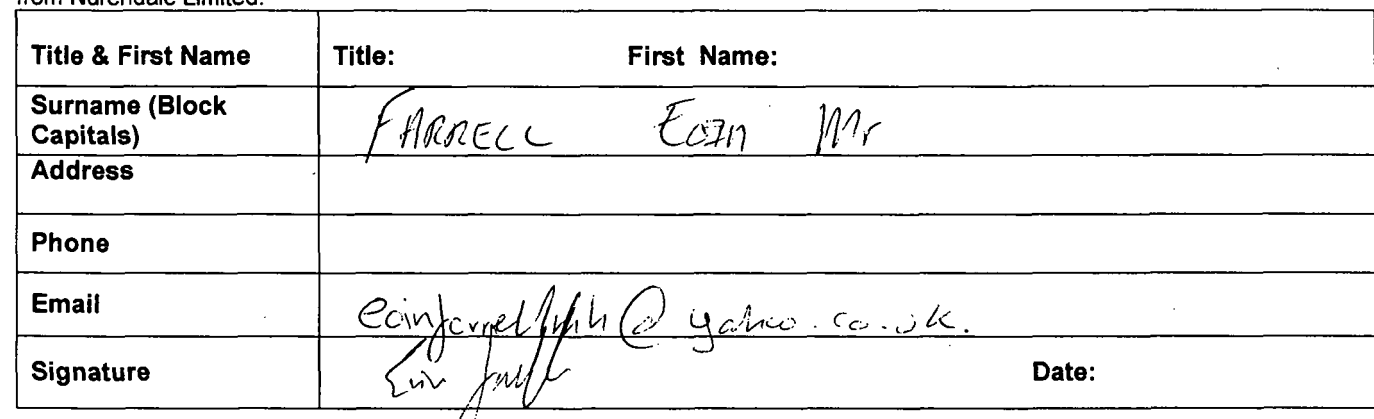 from Nurendale Limited.
Title & First Name Title: First Name:
Surname (Block
Capitals) FARRELL Eoin Mr
Address
Phone
Email @yahoo.co.uk.
Signature Date: